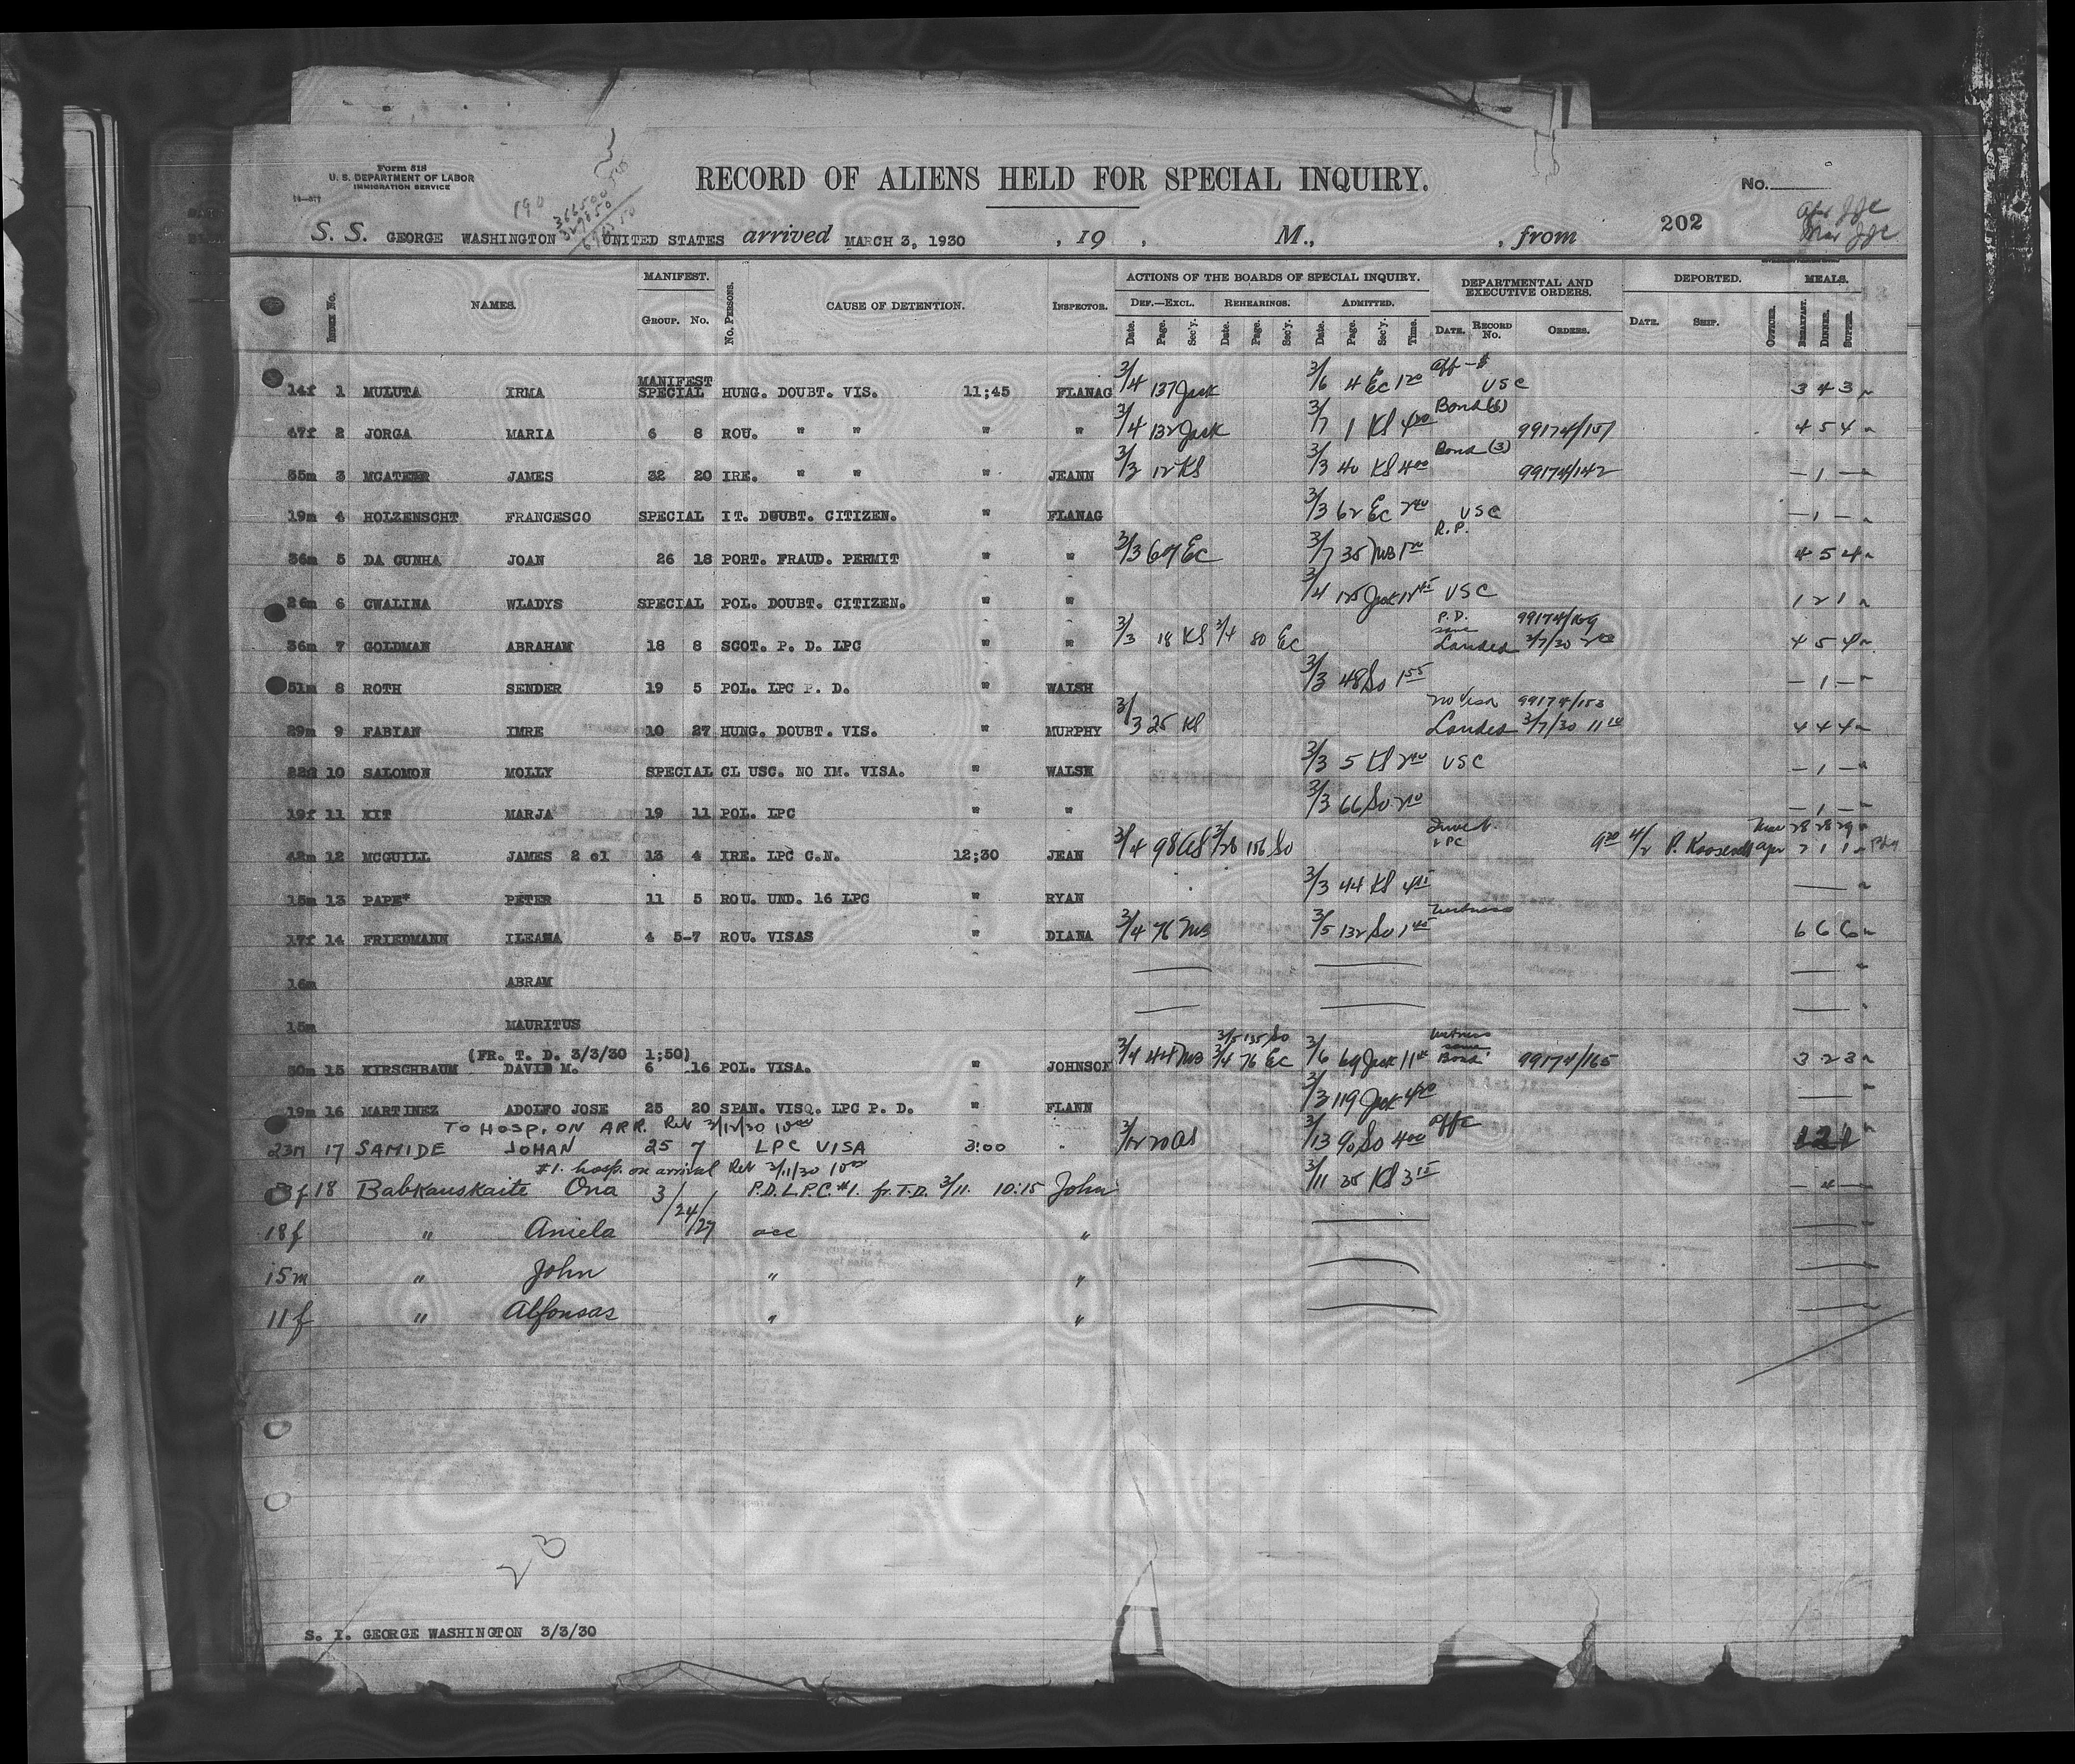 Form 518
U. S. DEPARTMENT OF LABOR
IMMIGRATION SERVICE
RECORD OF ALIENS HELD FOR SPECIAL INQUIRY.
No.
190
202
S. S. GEORGE WASHINGTON UNITED STATES arrived MARCH 3, 1930 , 19 , M., , from
INDEX No. NAMES. MANIFEST. Group. No. No. PERSONS. CAUSE OF DETENTION. INSPECTOR. ACTIONS OF THE BOARDS OF SPECIAL INQUIRY. DEPARTMENTAL AND EXECUTIVE ORDERS. DEPORTED. MEALS.
DEF.—EXCL. REHEARINGS. ADMITTED.
Date. Page. Sec'y. Date. Page. Sec'y. Date. Page. Sec'y. Time. DATE. RECORD No. ORDERS. DATE. SHIP. OFFICER. BREAKFAST. DINNER. SUPPER.
14f 1 MULUTA IRMA MANIFEST SPECIAL HUNG. DOUBT. VIS. 11;45 FLANAG 3/4 137 Jack 3/6 4 Ec 1 20 USC 3 4 3
47f 2 JORGA MARIA 6 8 ROU. " " " " 3/4 132 Jack 3/7 1 KS 4 20 Bond 99174/151 4 5 4
55m 3 MCATEER JAMES 32 20 IRE. " " " JEANN 3/3 12 KS 3/3 40 KS 4 00 Bond (3) 99174/142 — 1 —
19m 4 HOLZENSCHT FRANCESCO SPECIAL IT. DOUBT. CITIZEN. " FLANAG 3/3 62 Ec 2 40 USC — 1 —
36m 5 DA CUNHA JOAN 26 18 PORT. FRAUD. PERMIT " " 3/3 64 Ec 3/7 35 MB 1 20 R.P. 4 5 4
26m 6 CWALINA WLADYS SPECIAL POL. DOUBT. CITIZEN. " " 3/4 125 Jack 12 45 USC 1 2 1
36m 7 GOLDMAN ABRAHAM 18 8 SCOT. P. D. LPC " " 3/3 18 KS 3/4 80 Ec P.D. 99174/169 Landed 3/7/30 4 5 4
51m 8 ROTH SENDER 19 5 POL. LPC P. D. " WALSH 3/3 48 So 1 55 — 1 —
29m 9 FABIAN IMRE 10 27 HUNG. DOUBT. VIS. " MURPHY 3/3 25 KS no Visa 99174/153 Landed 3/7/30 11 10 4 4 4
22f 10 SALOMON MOLLY SPECIAL CL USC. NO IM. VISA. " WALSH 3/3 5 KS 2 40 USC — 1 —
19f 11 KIT MARJA 19 11 POL. LPC " " 3/3 66 So 2 10 — 1 —
42m 12 MCGUILL JAMES 2 cl 13 4 IRE. LPC C.N. 12;30 JEAN 3/4 98 3/28 156 So LPC 9 20 4/2 P. Roosevelt Mar 28 28 29 Apr 2 1 1
15m 13 PAPE* PETER 11 5 ROU. UND. 16 LPC " RYAN 3/3 44 KS 4 15
17f 14 FRIEDMANN ILEANA 4 5-7 ROU. VISAS " DIANA 3/4 76 MB 3/5 132 So 1 40 Witness 6 6 6
16m ABRAM
15m MAURITUS
(FR. T. D. 3/3/30 1;50)
30m 15 KIRSCHBAUM DAVID M. 6 16 POL. VISA. " JOHNSON 3/4 44 MB 3/4 76 Ec 3/5 135 So 3/6 69 Jack 11 Witness same Bond 99174/165 3 2 3
19m 16 MARTINEZ ADOLFO JOSE 25 20 SPAN. VISQ. LPC P. D. " FLANN 3/3 119 Jack 4 20
TO HOSP. ON ARR. Ret 3/12/30 10 00
23m 17 SAMIDE JOHAN 25 7 LPC VISA 3:00 3/12 20 3/13 90 So 4 00 1 2 1
#1. hosp. on arrival Ret 3/11/30 10 00
18 Babkauskaite Ona 3/24/27 P.D.L.P.C. #1. fr. T.D. 3/11. 10:15 John 3/11 35 KS 3 15
18f " Aniela acc "
15m " John " "
11f " Alfonsas " "
23
S. I. GEORGE WASHINGTON 3/3/30